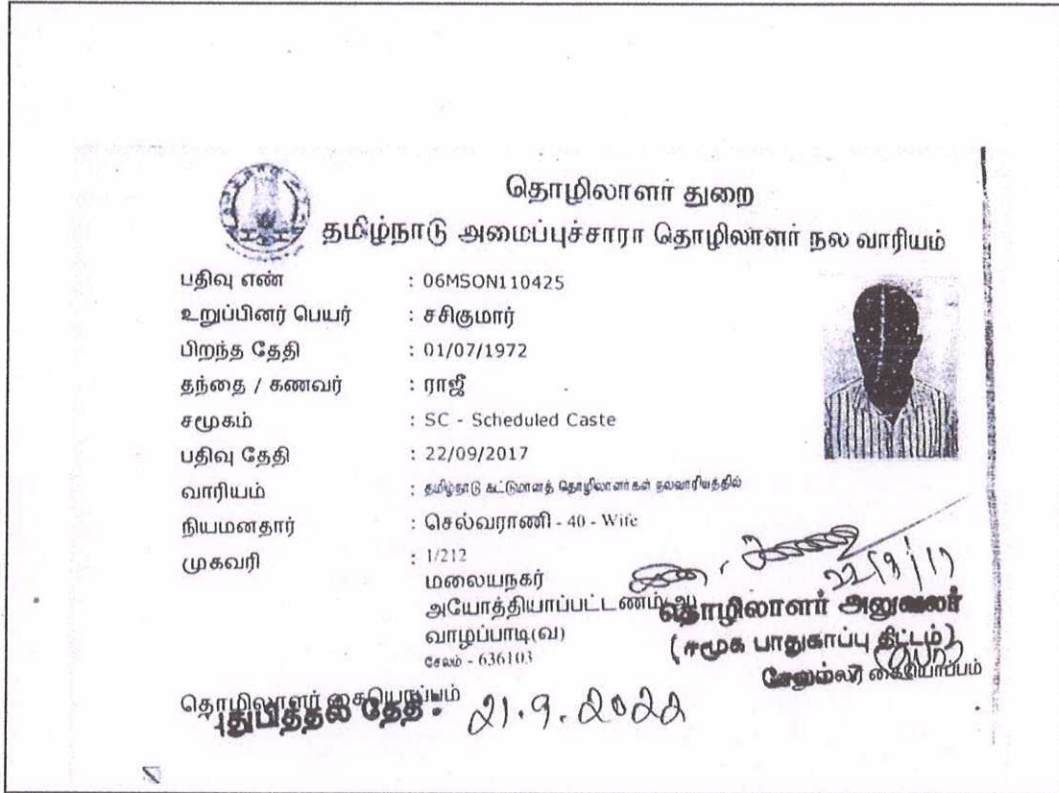 தொழிலாளர் துறை
தமிழ்நாடு அமைப்புச்சாரா தொழிலாளர் நல வாரியம்
பதிவு எண் : 06MSON110425
உறுப்பினர் பெயர் : சசிகுமார்
பிறந்த தேதி : 01/07/1972
தந்தை / கணவர் : ராஜீ
சமூகம் : SC - Scheduled Caste
பதிவு தேதி : 22/09/2017
வாரியம் : தமிழ்நாடு கட்டுமானத் தொழிலாளர்கள் நலவாரியத்தில்
நியமனதார் : செல்வராணி - 40 - Wife
முகவரி : 1/212
மலையநகர்
அயோத்தியாப்பட்டணம்
வாழப்பாடி(வ)
சேலம் - 636103
22/9/17
தொழிலாளர் அனுவலர்
(சமூக பாதுகாப்பு திட்டம்)
சேலம்
கையொப்பம்
தொழிலாளர் கையொப்பம்
புதுபித்தல் தேதி : 21.9.2022